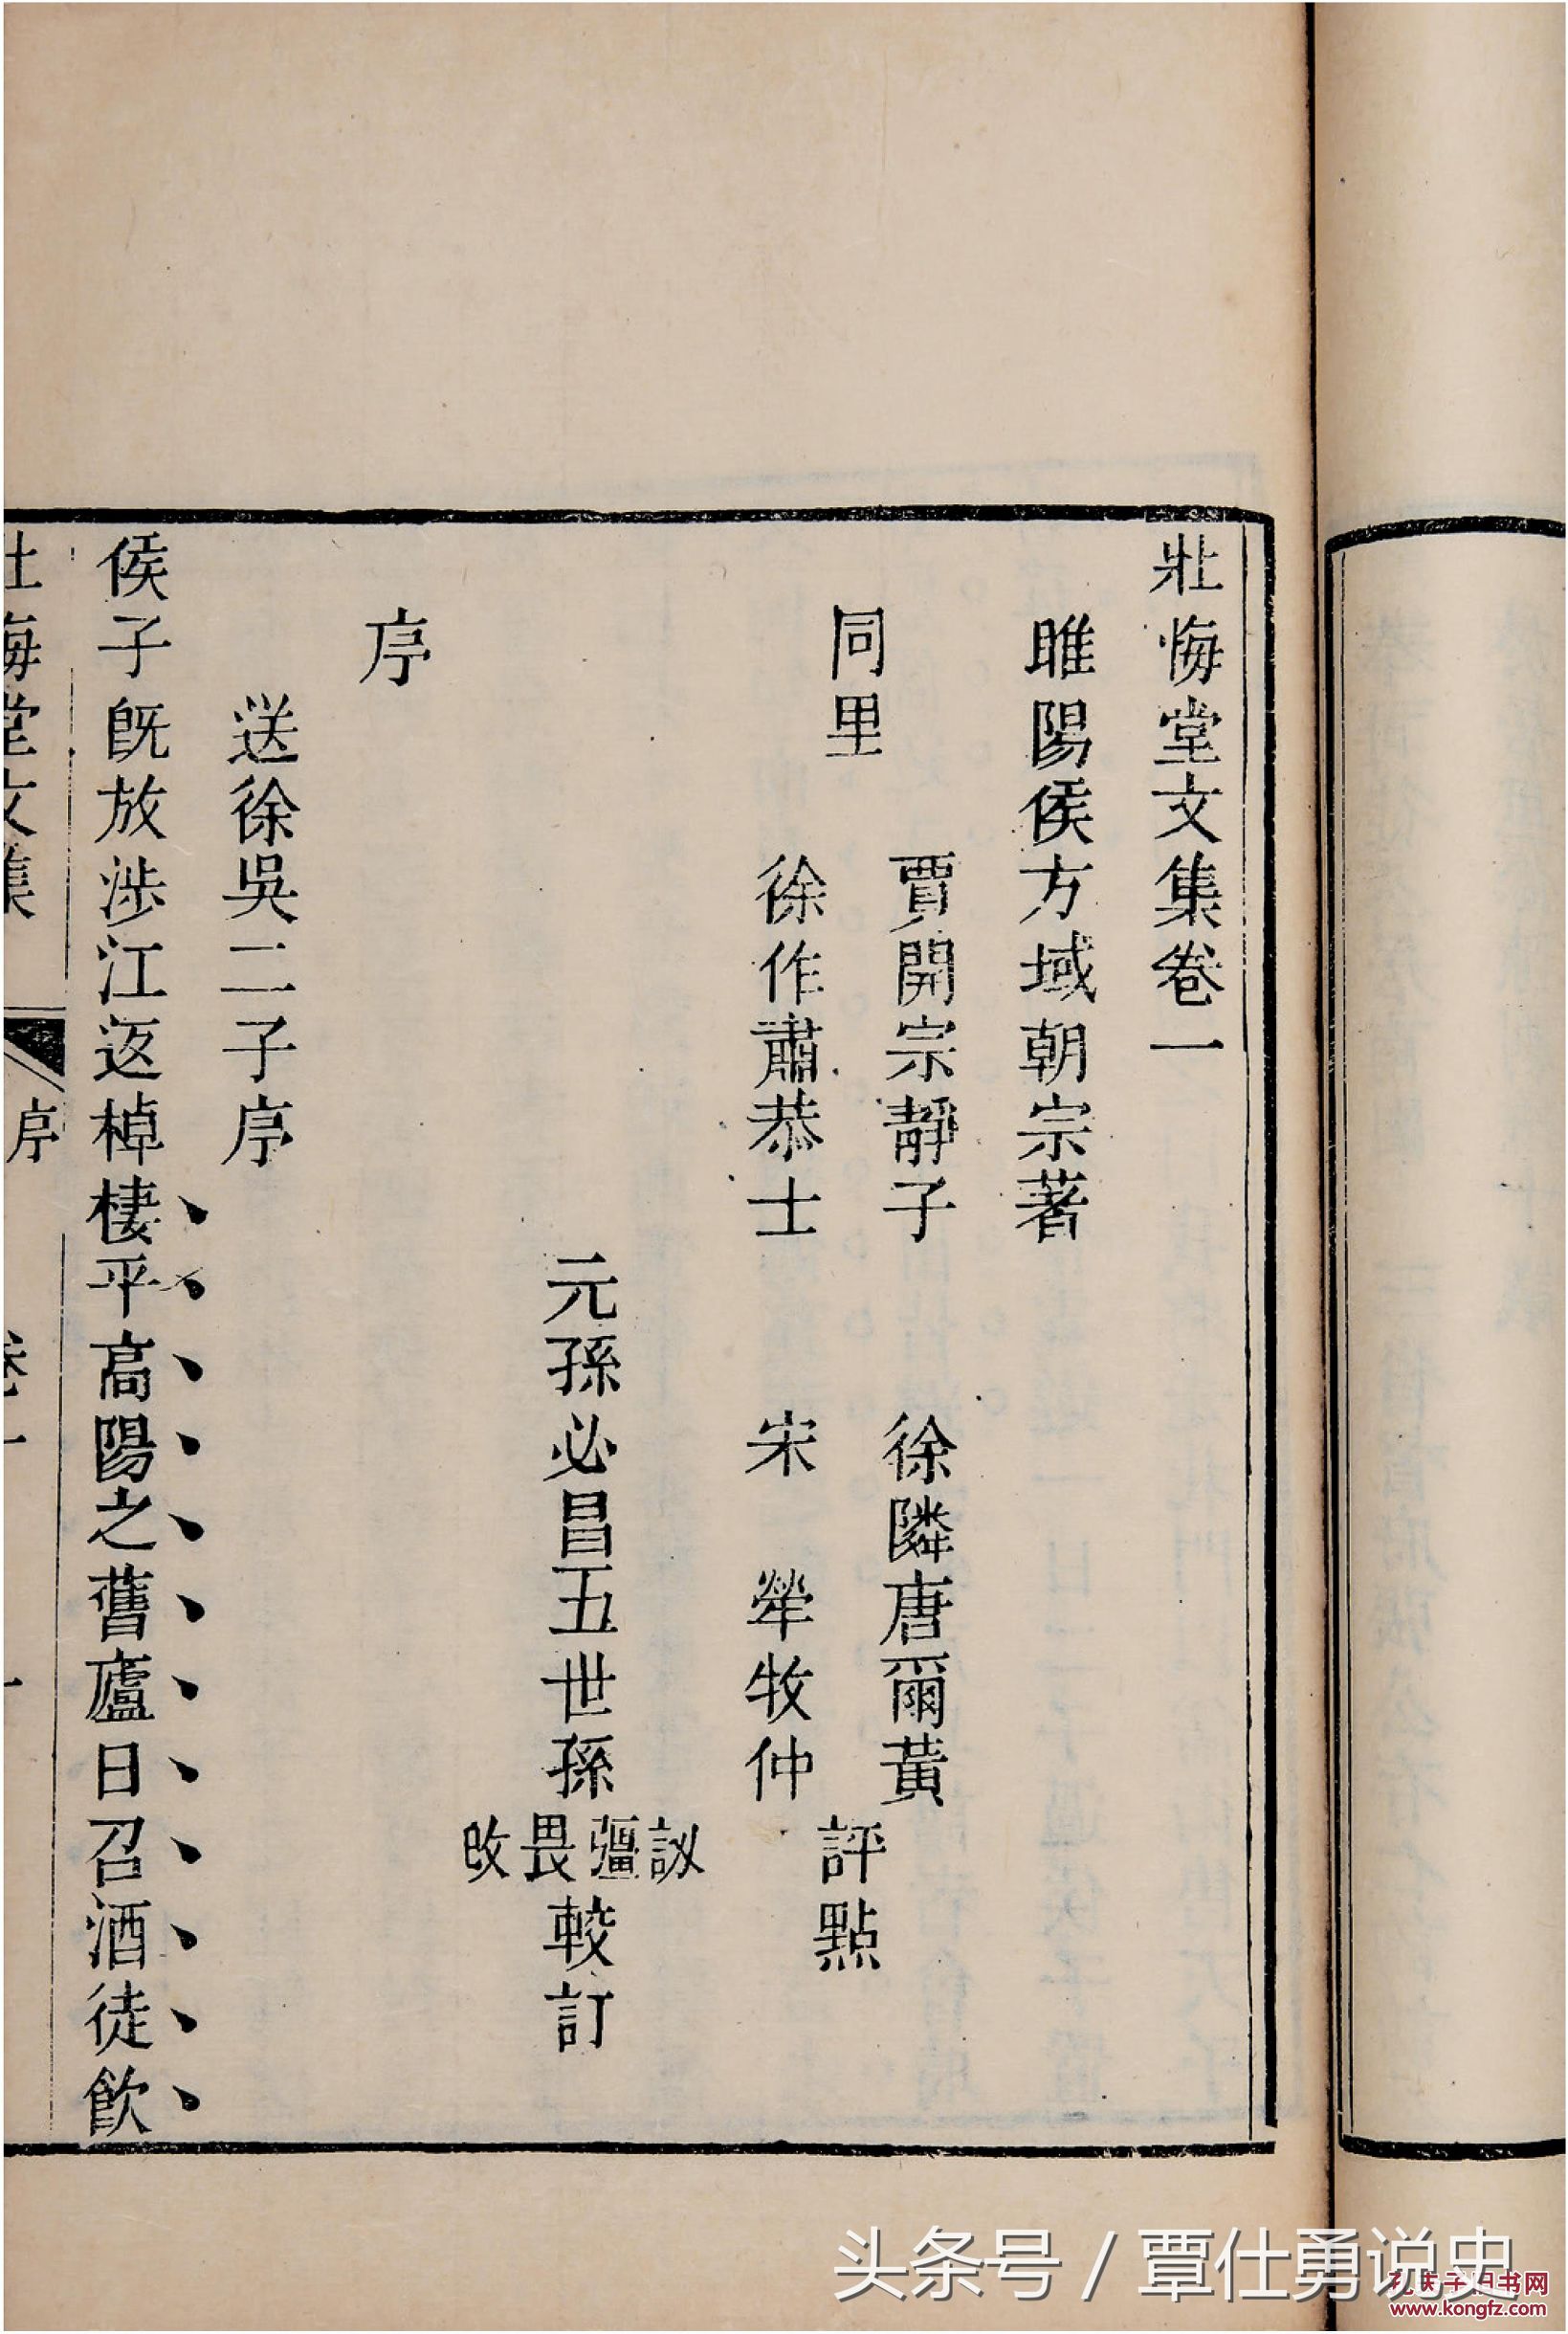 壯悔堂文集卷一
睢陽侯方域朝宗著
賈開宗靜子 徐隣唐爾黃
同里 評點
徐作肅恭士 宋 犖牧仲
元孫必昌五世孫 彊畏 較訂
序
送徐吳二子序
侯子既放涉江返棹棲平高陽之舊廬日召酒徒飲
壯悔堂文集 序 卷一 一
头条号 / 覃仕勇说史
孔夫子旧书网
www.kongfz.com